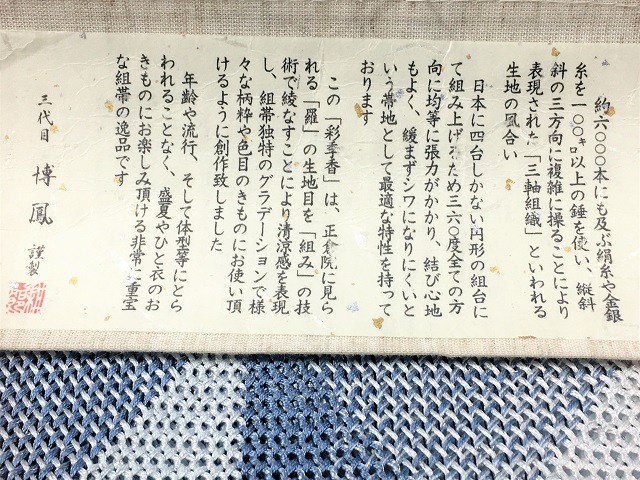 約六〇〇〇本にも及ぶ絹糸や金銀
糸を一〇〇㌔以上の錘を使い、縦斜
斜の三方向に複雑に操ることにより
表現された「三軸組織」といわれる
生地の風合い
日本に四台しかない円形の組台に
て組み上げるため三六〇度全ての方
向に均等に張力がかかり、結び心地
もよく、緩まずシワになりにくいと
いう帯地として最適な特性を持って
おります
この「彩香」は、正倉院に見ら
れる「羅」の生地目を「組み」の技
術で綾なすことにより清涼感を表現
し、組帯独特のグラデーションで様
々な柄粋や色目のきものにお使い頂
けるように創作致しました
年齢や流行、そして体型等にとら
われることなく、盛夏やひと衣のお
きものにお楽しみ頂ける非常に重宝
な組帯の逸品です
三代目 博鳳 謹製